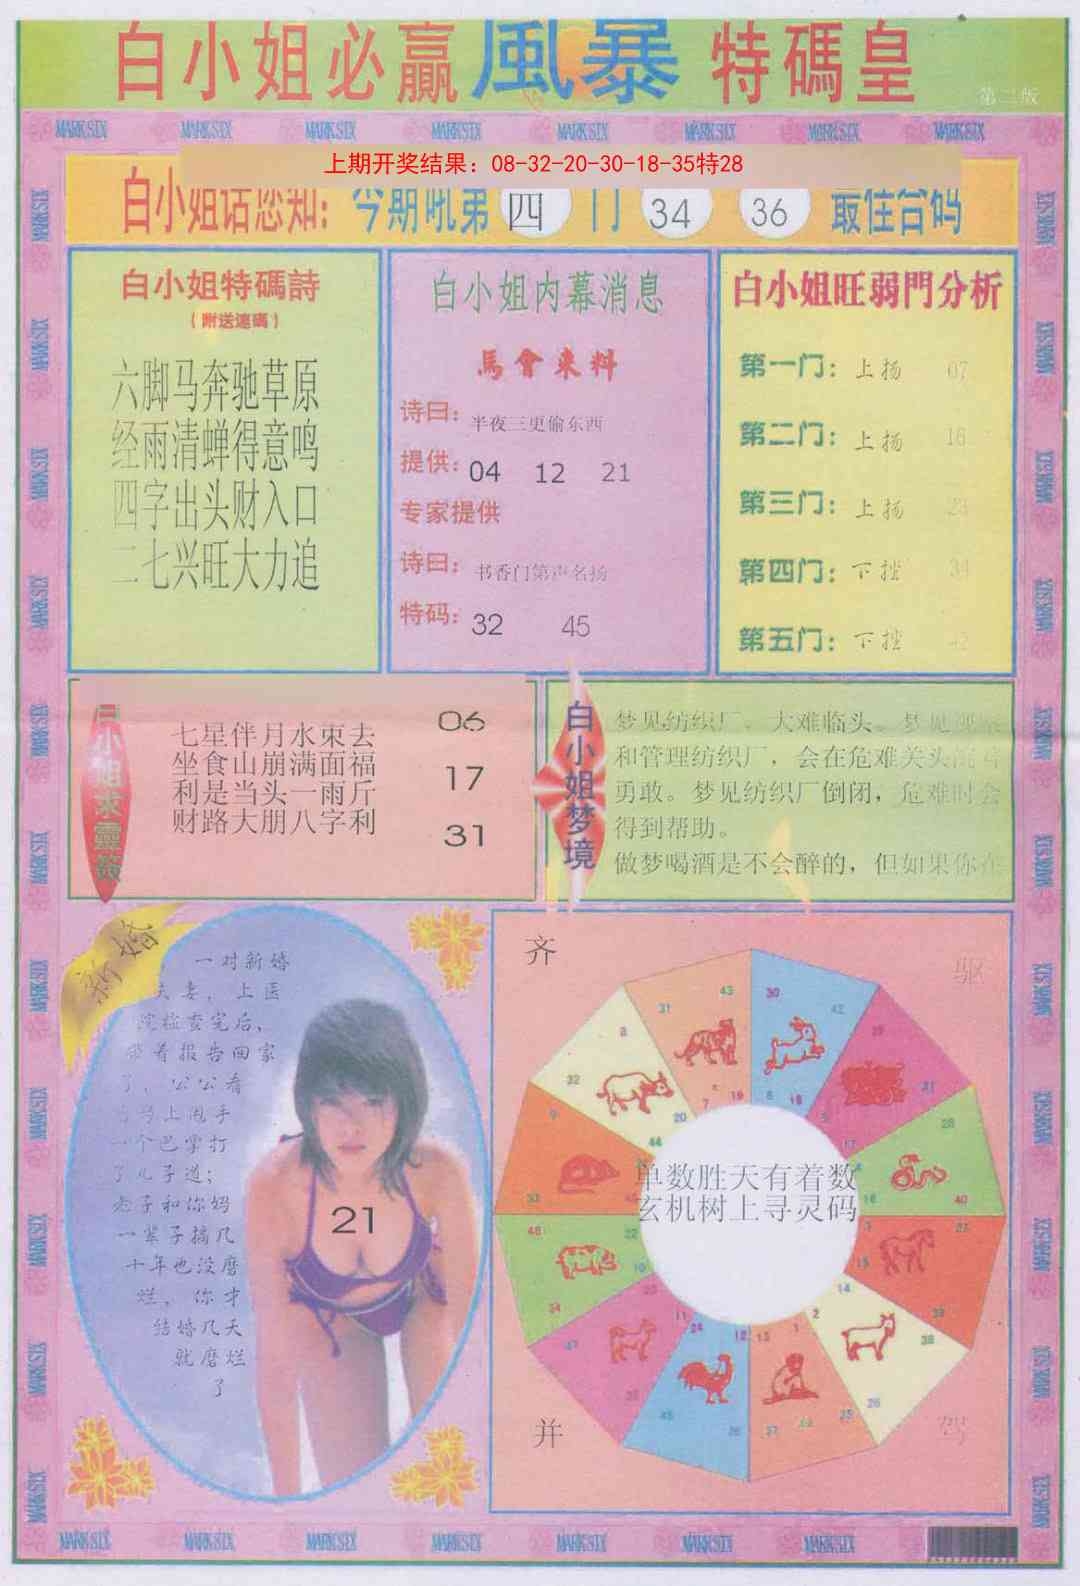 白小姐必赢風暴特碼皇
第二版
MARK SIX MARK SIX MARK SIX MARK SIX MARK SIX MARK SIX MARK SIX MARK SIX
上期开奖结果：08-32-20-30-18-35特28
白小姐话您知：今期吼第四门 34 36 最佳合码
白小姐特碼詩
（附送速碼）
六脚马奔驰草原
经雨清蝉得意鸣
四字出头财入口
二七兴旺大力追
白小姐内幕消息
馬會来料
诗曰：半夜三更偷东西
提供：04 12 21
专家提供
诗曰：书香门第声名扬
特码：32 45
白小姐旺弱門分析
第一门：上扬 07
第二门：上扬 16
第三门：上扬 23
第四门：下挫 34
第五门：下挫
白小姐求靈簽
七星伴月水東去
坐食山崩满面福
利是当头一雨斤
财路大朋八字利
06
17
31
白小姐梦境
梦见纺织厂、大难临头。梦见
和管理纺织厂，会在危难关头
勇敢。梦见纺织厂倒闭，危难时会
得到帮助。
做梦喝酒是不会醉的，但如果你在
新婚
一对新婚
夫妻，上医
院检查完后，
带着报告回家
了，公公看
马上甩手
一个巴掌打
了儿子道；
老子和你妈
一辈子搞几
十年也没磨
烂，你才
结婚几天
就磨烂
了
21
齐
驱
单数胜天有着数
玄机树上寻灵码
并
驾
31 43 30 42
8 32 20 44
7 19 6 18
28 40 16
14 38 26
1 2 12 24 11
48 34 22 10
MARK SIX MARK SIX MARK SIX MARK SIX MARK SIX MARK SIX MARK SIX